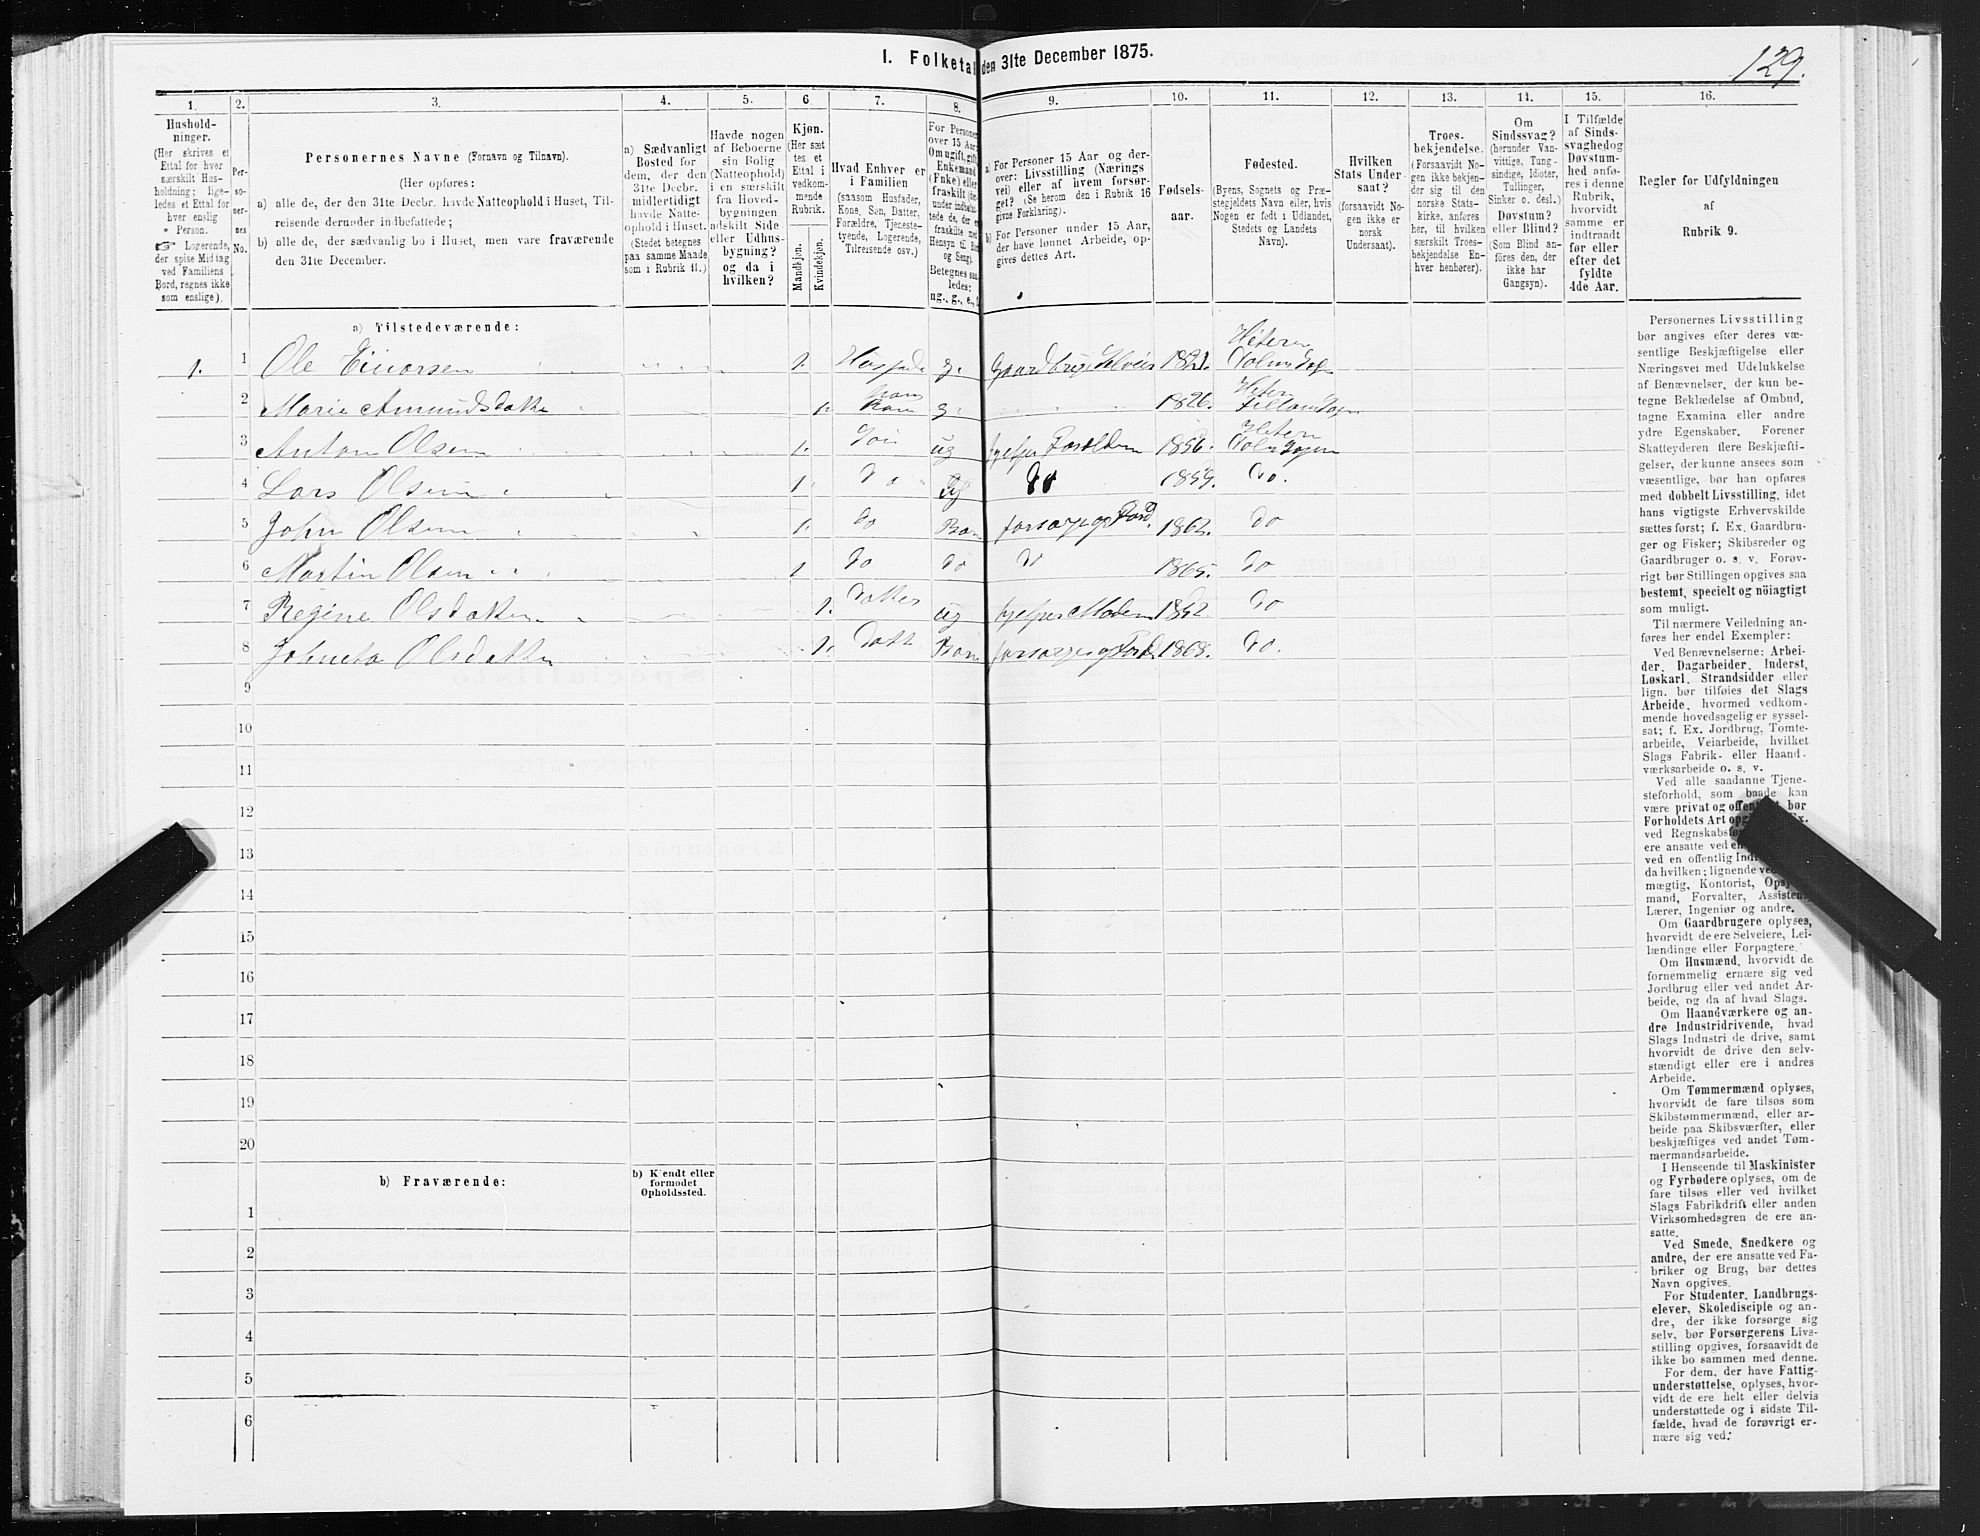 I. Folketal den 31te December 1875.
129.
1.
Hushold-
ninger.
(Her skrives et
Ettal for hver
særskilt Hus-
holdning; lige-
ledes et Ettal for
hver enslig
Person.
Logerende,
der spise Middag
ved Familiens
Bord, regnes ikke
som enslige).
2.
Per-
so-
ner-
nes
No.
3.
Personernes Navne (Fornavn og Tilnavn).
(Her opføres:
a) alle de, der den 31te Decbr. havde Natteophold i Huset, Til-
reisende derunder indbefattede;
b) alle de, der sædvanlig bo i Huset, men vare fraværende
den 31te December.
4.
a) Sædvanligt
Bosted for
dem, der den
31te Decbr.
midlertidigt
havde Natte-
ophold i Huset.
(Stedet betegnes
paa samme Maade
som i Rubrik 11.)
5.
Havde nogen
af Beboerne
sin Bolig
(Natteophold)
i en særskilt
fra Hoved-
bygningen
adskilt Side
eller Udhus-
bygning?
og da i
hvilken?
6
Kjøn.
(Her sæt
tes et
Ettal i
vedkom-
mende
Rubrik.
Mandkjøn.
Kvindekjøn.
7.
Hvad Enhver er
i Familien
(saasom Husfader,
Kone, Søn, Datter,
Forældre, Tjeneste-
tyende, Logerende,
Tilreisende osv.)
8.
For Personer
over 15 Aar:
Om ugift, gift,
Enkemand
(Enke) eller
fraskilt
Betegnes saa-
ledes:
ug., g., e.,
9.
a) For Personer 15 Aar og der-
over: Livsstilling (Nærings
vei) eller af hvem forsør-
get? (Se herom den i Rubrik 16
givne Forklaring).
b) For Personer under 15 Aar,
der have lønnet Arbeide, op-
gives dettes Art.
10.
Fødsels-
aar.
11.
Fødested.
(Byens, Sognets og Præ-
stegjeldets Navn eller, hvis
Nogen er født i Udlandet,
Stedets og Landets
Navn).
12.
Hvilken
Stats Under-
saat?
(forsaavidt No-
gen ikke er
norsk
Undersaat).
13.
Troes-
bekjendelse.
(Forsaavidt No-
gen ikke bekjen-
der sig til den
norske Stats-
kirke, anføres
her, til hvilken
særskilt Troes-
bekjendelse En-
hver henhører).
14.
Om
Sindssvag?
(herunder Van-
vittige, Tung-
sindige, Idioter,
Tullinger,
Sinker o. desl.)
Døvstum?
eller Blind?
(Som Blind an-
føres den, der
ikke har
Gangsyn).
15.
I Tilfælde
af Sinds-
svaghed og
Døvstum-
hed anfø-
res i denne
Rubrik,
hvorvidt
samme er
indtraadt
før eller
efter det
fyldte
4de Aar.
16.
Regler for Udfyldningen
af
Rubrik 9.
a) Tilstedeværende:
1. 1 Ole Einorsen 1. g. Gaardbruger Selveier 1821. Hitern Dolm Sogn
2 Marie Amundsdatter 1. Kone g. 1826. Hitern Fillan Sogn
3 Anton Olsen 1. Søn ug hjelper Forældren 1856. Hitern Dolm Sogn
4 Lars Olsen 1. do ug do 1859. do.
5 John Olsen 1. do Barn forsørges af Forld. 1862. do
6 Martin Olsen 1 do do do 1865. do
7 Regine Olsdatter 1. Datter ug hjelper Moderen 1852. do
8 Johneta Olsdatter 1. Datt Barn forsørges af Forld. 1868. do.
9
10
11
12
13
14
15
16
17
18
19
20
b) Fraværende:
b) Kjendt eller
formodet
Opholdssted.
1
2
3
4
5
6
Personernes Livsstilling
bør angives efter deres væ-
sentlige Beskjæftigelse eller
Næringsvei med Udelukkelse
af Benævnelser, der kun be-
tegne Beklædelse af Ombud,
tagne Examina eller andre
ydre Egenskaber. Forener
Skatteyderen flere Beskjæfti-
gelser, der kunne ansees som
væsentlige, bør han opføres
med dobbelt Livsstilling, idet
hans vigtigste Erhvervskilde
sættes først; f. Ex. Gaardbru-
ger og Fisker; Skibsreder og
Gaardbruger o. s. v. Forøv-
rigt bør Stillingen opgives saa
bestemt, specielt og nöiagtigt
som muligt.
Til nærmere Veiledning an-
føres her endel Exempler:
Ved Benævnelserne: Arbei-
der, Dagarbeider, Inderst,
Løskarl, Strandsidder eller
lign. bør tilføies det Slags
Arbeide, hvormed vedkom-
mende hovedsagelig er syssel-
sat; f. Ex. Jordbrug, Tomte-
arbeide, Veiarbeide, hvilket
Slags Fabrik- eller Haand-
værksarbeide o. s. v.
Ved alle saadanne Tjene-
steforhold, som baade kan
være privat og offentligt, bør
Forholdets Art opgives, Ex.
ved Regnskabs
ere ansatte ved
ved en offentlig
da hvilken; lignende ved
mægtig, Kontorist,
mand, Forvalter, Assistent,
Lærer, Ingeniør og andre.
Om Gaardbrugere oplyses,
hvorvidt de ere Selveiere, Lei-
lændinge eller Forpagtere.
Om Husmænd, hvorvidt de
fornemmelig ernære sig ved
Jordbrug eller ved andet Ar-
beide, og da af hvad Slags.
Om Haandværkere og an-
dre Industridrivende, hvad
Slags Industri de drive, samt
hvorvidt de drive den selv-
stændigt eller ere i andres
Arbeide.
Om Tømmermænd oplyses,
hvorvidt de fare tilsøs som
Skibstømmermænd, eller ar-
beide paa Skibsværfter, eller
beskjæftiges ved andet Tøm-
mermandsarbeide.
I Henseende til Maskinister
og Fyrbødere oplyses, om de
fare tilsøs eller ved hvilket
Slags Fabrikdrift eller anden
Virksomhedsgren de ere an-
satte.
Ved Smede, Snedkere og
andre, der ere ansatte ved Fa-
briker og Brug, bør dettes
Navn opgives.
For Studenter, Landbrugs-
elever, Skoledisciple og an-
dre, der ikke forsørge sig
selv, bør Forsørgerens Livs-
stilling opgives, forsaavidt de
ikke bo sammen med denne.
For dem, der have Fattig-
understøttelse, oplyses, hvor-
vidt de ere helt eller delvis
understøttede og i sidste Til-
fælde, hvad de forøvrigt er-
nære sig ved.